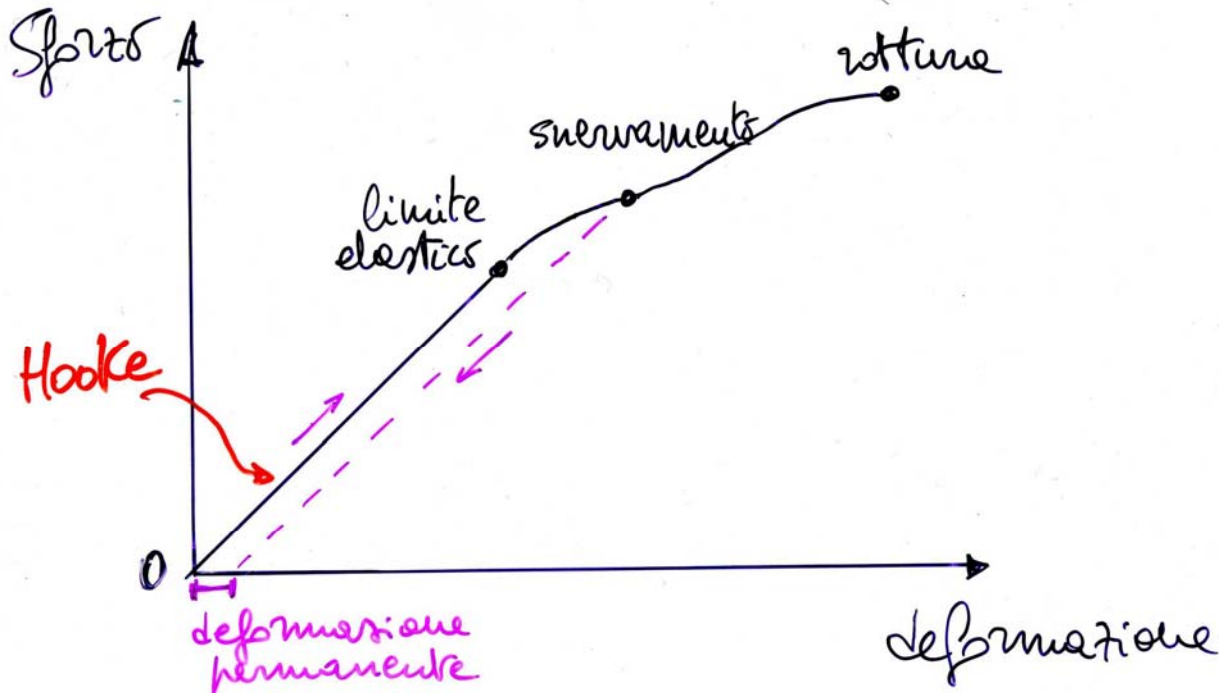 Sforzo
rottura
snervamento
limite
elastico
Hooke
0
deformazione
permanente
deformazione